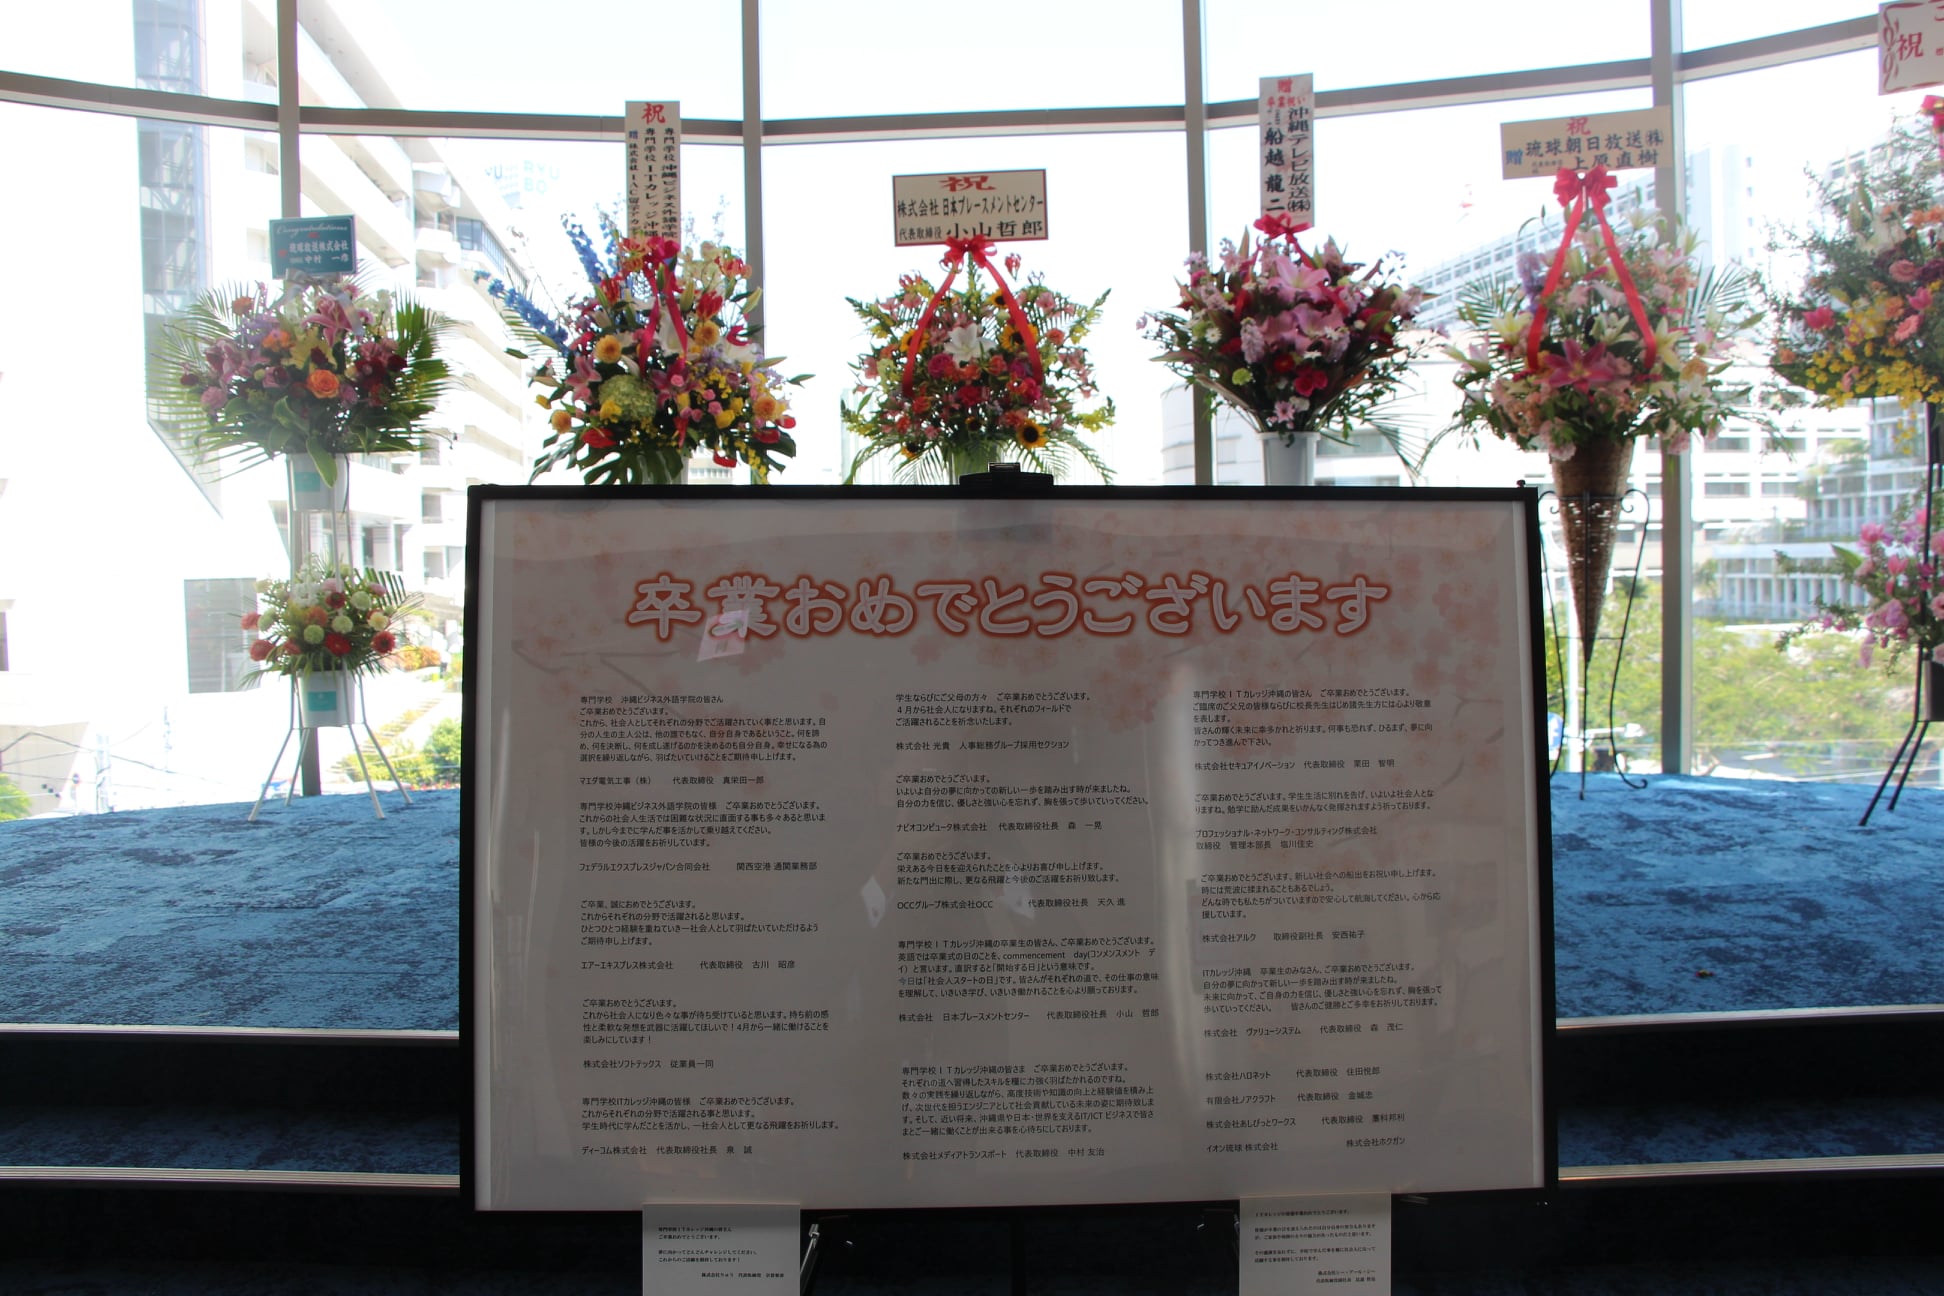 Congratulations
琉球放送株式会社
中村 一彦
祝
専門学校 沖縄ビジネス外語学院
専門学校 ITカレッジ沖縄
贈 株式会社 IAC留学アカ
祝
株式会社 日本プレースメントセンター
代表取締役 小山哲郎
贈
卒業祝い
沖縄テレビ放送㈱
船越 龍二
祝
贈 琉球朝日放送㈱
上原直樹
祝
卒業おめでとうございます
専門学校 沖縄ビジネス外語学院の皆さん
ご卒業おめでとうございます。
これから、社会人としてそれぞれの分野でご活躍されていく事だと思います。自
分の人生の主人公は、他の誰でもなく、自分自身であるということ。何を諦
め、何を決断し、何を成し遂げるのかを決めるのも自分自身。幸せになる為の
選択を繰り返しながら、羽ばたいていけることをご期待申し上げます。
マエダ電気工事（株） 代表取締役 真栄田一郎
専門学校沖縄ビジネス外語学院の皆様 ご卒業おめでとうございます。
これからの社会人生活では困難な状況に直面する事も多々あると思いま
す。しかし今までに学んだ事を活かして乗り越えてください。
皆様の今後の活躍をお祈りしています。
フェデラルエクスプレスジャパン合同会社 関西空港 通関業務部
ご卒業、誠におめでとうございます。
これからそれぞれの分野で活躍されると思います。
ひとつひとつ経験を重ねていき一社会人として羽ばたいていただけるよう
ご期待申し上げます。
エアーエキスプレス株式会社 代表取締役 古川 昭彦
ご卒業おめでとうございます。
これから社会人になり色々な事が待ち受けていると思います。持ち前の感
性と柔軟な発想を武器に活躍してほしいで！4月から一緒に働けることを
楽しみにしています！
株式会社ソフトテックス 従業員一同
専門学校ITカレッジ沖縄の皆様 ご卒業おめでとうございます。
これからそれぞれの分野で活躍される事と思います。
学生時代に学んだことを活かし、一社会人として更なる飛躍をお祈りします。
ディーコム株式会社 代表取締役社長 泉 誠
学生ならびにご父母の方々 ご卒業おめでとうございます。
４月から社会人になりますね。それぞれのフィールドで
ご活躍されることを祈念いたします。
株式会社 光貴 人事総務グループ採用セクション
ご卒業おめでとうございます。
いよいよ自分の夢に向かっての新しい一歩を踏み出す時が来ましたね。
自分の力を信じ、優しさと強い心を忘れず、胸を張って歩いていってください。
ナビオコンピュータ株式会社 代表取締役社長 森 一晃
ご卒業おめでとうございます。
栄えある今日をを迎えられたことを心よりお喜び申し上げます。
新たな門出に際し、更なる飛躍と今後のご活躍をお祈り致します。
OCCグループ株式会社OCC 代表取締役社長 天久 進
専門学校ＩＴカレッジ沖縄の卒業生の皆さん、ご卒業おめでとうございます。
英語では卒業式の日のことを、commencement day(コンメンスメント デ
イ）と言います。直訳すると「開始する日」という意味です。
今日は「社会人スタートの日」です。皆さんがそれぞれの道で、その仕事の意味
を理解して、いきいき学び、いきいき働かれることを心より願っております。
株式会社 日本プレースメントセンター 代表取締役社長 小山 哲郎
専門学校ＩＴカレッジ沖縄の皆さま ご卒業おめでとうございます。
それぞれの道へ習得したスキルを糧に力強く羽ばたかれるのですね。
数々の実践を繰り返しながら、高度技術や知識の向上と経験値を積み上
げ、次世代を担うエンジニアとして社会貢献している未来の姿に期待致しま
す。そして、近い将来、沖縄県や日本・世界を支えるIT/ICTビジネスで皆さ
まとご一緒に働くことが出来る事を心待ちにしております。
株式会社メディアトランスポート 代表取締役 中村 友治
専門学校ＩＴカレッジ沖縄の皆さん ご卒業おめでとうございます。
ご臨席のご父兄の皆様ならびに校長先生はじめ諸先生方には心より敬意
を表します。
皆さんの輝く未来に幸多かれと祈ります。何事も恐れず、ひるまず、夢に向
かってつき進んで下さい。
株式会社セキュアイノベーション 代表取締役 栗田 智明
ご卒業おめでとうございます。学生生活に別れを告げ、いよいよ社会人とな
りますね。勉学に励んだ成果をいかんなく発揮されますよう祈っております。
プロフェッショナル・ネットワーク・コンサルティング株式会社
取締役 管理本部長 塩川佳史
ご卒業おめでとうございます、新しい社会への船出をお祝い申し上げます。
時には荒波に揉まれることもあるでしょう。
どんな時でも私たちがついていますので安心して航海してください。心から応
援しています。
株式会社アルク 取締役副社長 安西祐子
ITカレッジ沖縄 卒業生のみなさん、ご卒業おめでとうございます。
自分の夢に向かって新しい一歩を踏み出す時が来ましたね。
未来に向かって、ご自身の力を信じ、優しさと強い心を忘れず、胸を張って
歩いていってください。 皆さんのご健勝とご多幸をお祈りしております。
株式会社 ヴァリューシステム 代表取締役 森 茂仁
株式会社ハロネット 代表取締役 住田悦郎
有限会社ノアクラフト 代表取締役 金城忠
株式会社あしびっとワークス 代表取締役 藁科邦利
イオン琉球 株式会社 株式会社ホクガン
専門学校ＩＴカレッジ沖縄の皆さん
ご卒業おめでとうございます。
夢に向かってどんどんチャレンジしてください。
これからのご活躍を期待しております！
ＩＴカレッジの皆様卒業おめでとうございます。